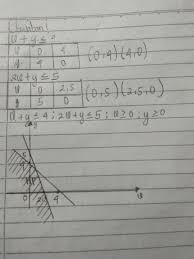 x + y ≤ 4
x 0 4
y 4 0
(0,4)(4,0)
2x + y ≤ 5
x 0 2,5
y 5 0
(0,5)(2,5,0)
x + y ≤ 4 ; 2x + y ≤ 5 ; x ≥ 0 ; y ≥ 0
y
5
4
0 2,5 4 x